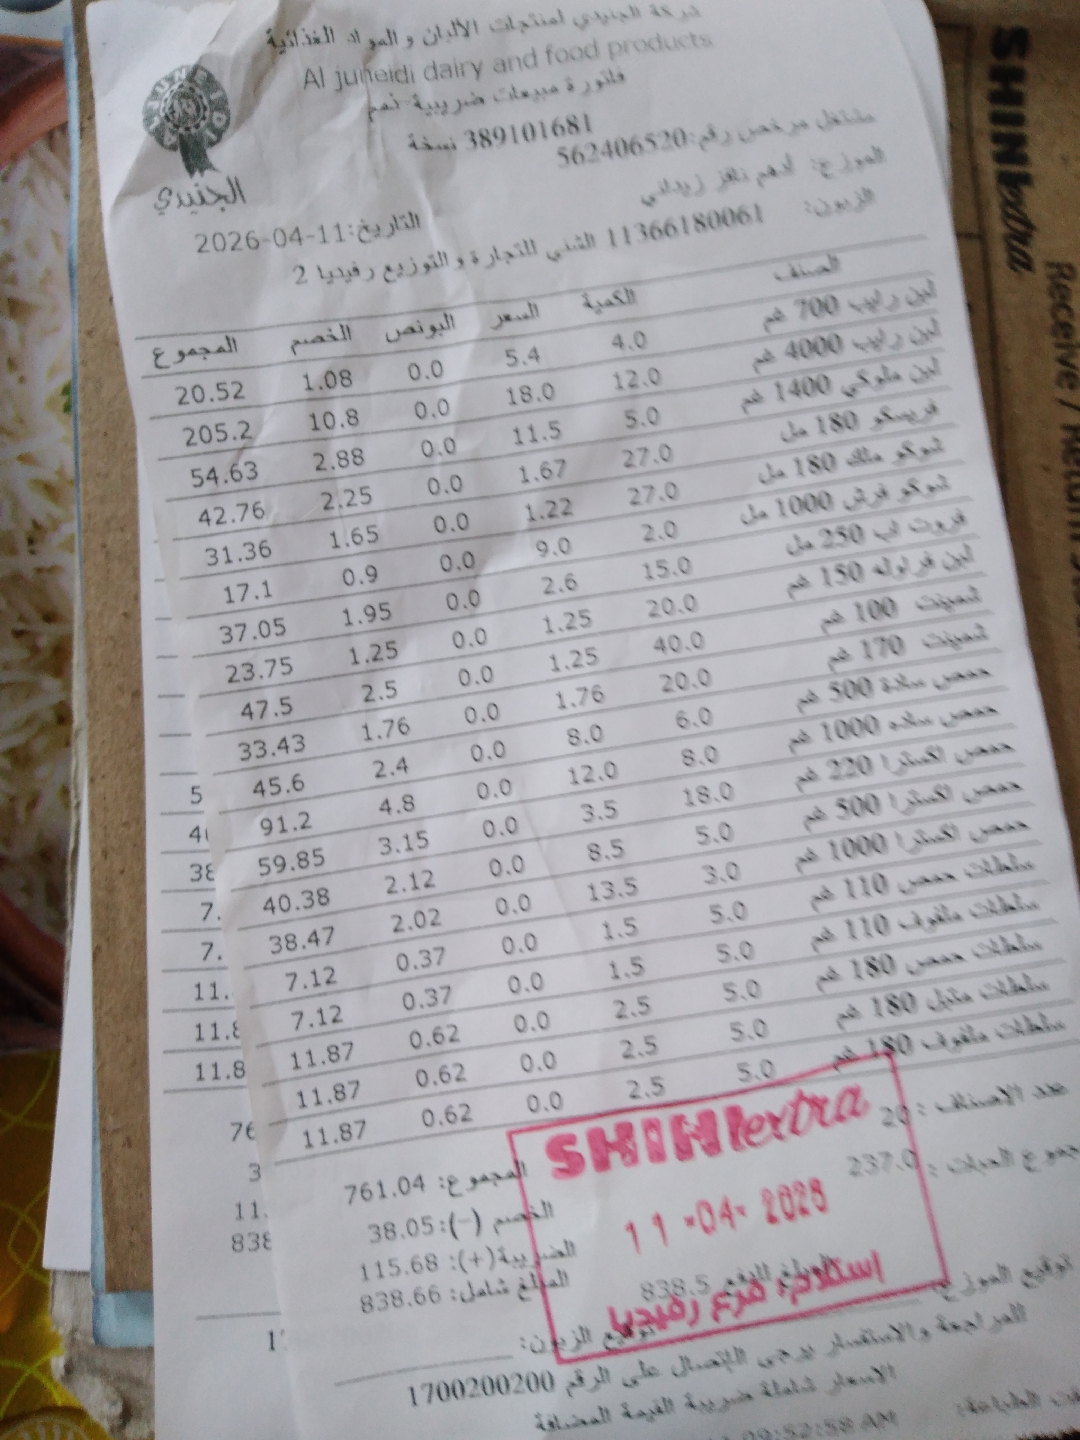 شركة الجنيدي لمنتجات الألبان و المواد الغذائية
Al juneidi dairy and food products
فاتورة مبيعات ضريبية ذمم
389101681 نسخة
مشتغل مرخص رقم:562406520
الموزع: ادهم نافز زيداني
الزبون: 11366180061 الشني للتجارة و التوزيع رفيديا 2
التاريخ:2026-04-11
الجنيدي
الصنف الكمية السعر البونص الخصم المجموع
لبن رايب 700 غم 4.0 5.4 0.0 1.08 20.52
لبن رايب 4000 غم 12.0 18.0 0.0 10.8 205.2
لبن ملوكي 1400 غم 5.0 11.5 0.0 2.88 54.63
فريسكو 180 مل 27.0 1.67 0.0 2.25 42.76
شوكو ملك 180 مل 27.0 1.22 0.0 1.65 31.36
شوكو فرش 1000 مل 2.0 9.0 0.0 0.9 17.1
فروت اب 250 مل 15.0 2.6 0.0 1.95 37.05
لبن فراوله 150 غم 20.0 1.25 0.0 1.25 23.75
شمينت 100 غم 40.0 1.25 0.0 2.5 47.5
شمينت 170 غم 20.0 1.76 0.0 1.76 33.43
حمص سادة 500 غم 6.0 8.0 0.0 2.4 45.6
حمص ساده 1000 غم 8.0 12.0 0.0 4.8 91.2
حمص اكسترا 220 غم 18.0 3.5 0.0 3.15 59.85
حمص اكسترا 500 غم 5.0 8.5 0.0 2.12 40.38
حمص اكسترا 1000 غم 3.0 13.5 0.0 2.02 38.47
سلطات حمص 110 غم 5.0 1.5 0.0 0.37 7.12
سلطات ملفوف 110 غم 5.0 1.5 0.0 0.37 7.12
سلطات حمص 180 غم 5.0 2.5 0.0 0.62 11.87
سلطات متبل 180 غم 5.0 2.5 0.0 0.62 11.87
سلطات ملفوف 180 غم 5.0 2.5 0.0 0.62 11.87
عدد الاصناف : 20
مجموع الحبات : 237.0
المجموع: 761.04
الخصم (-):38.05
الضريبة(+): 115.68
المبلغ شامل: 838.66
المبلغ للدفع 838.5
SHINIextra
11-04-2026
استلام: فرع رفيديا
توقيع الموزع:
توقيع الزبون:
للمراجعة والاستفسار يرجى الاتصال على الرقم 1700200200
الاسعار شاملة ضريبة القيمة المضافة
09:52:58 AM
SHINIextra
Receive / Return